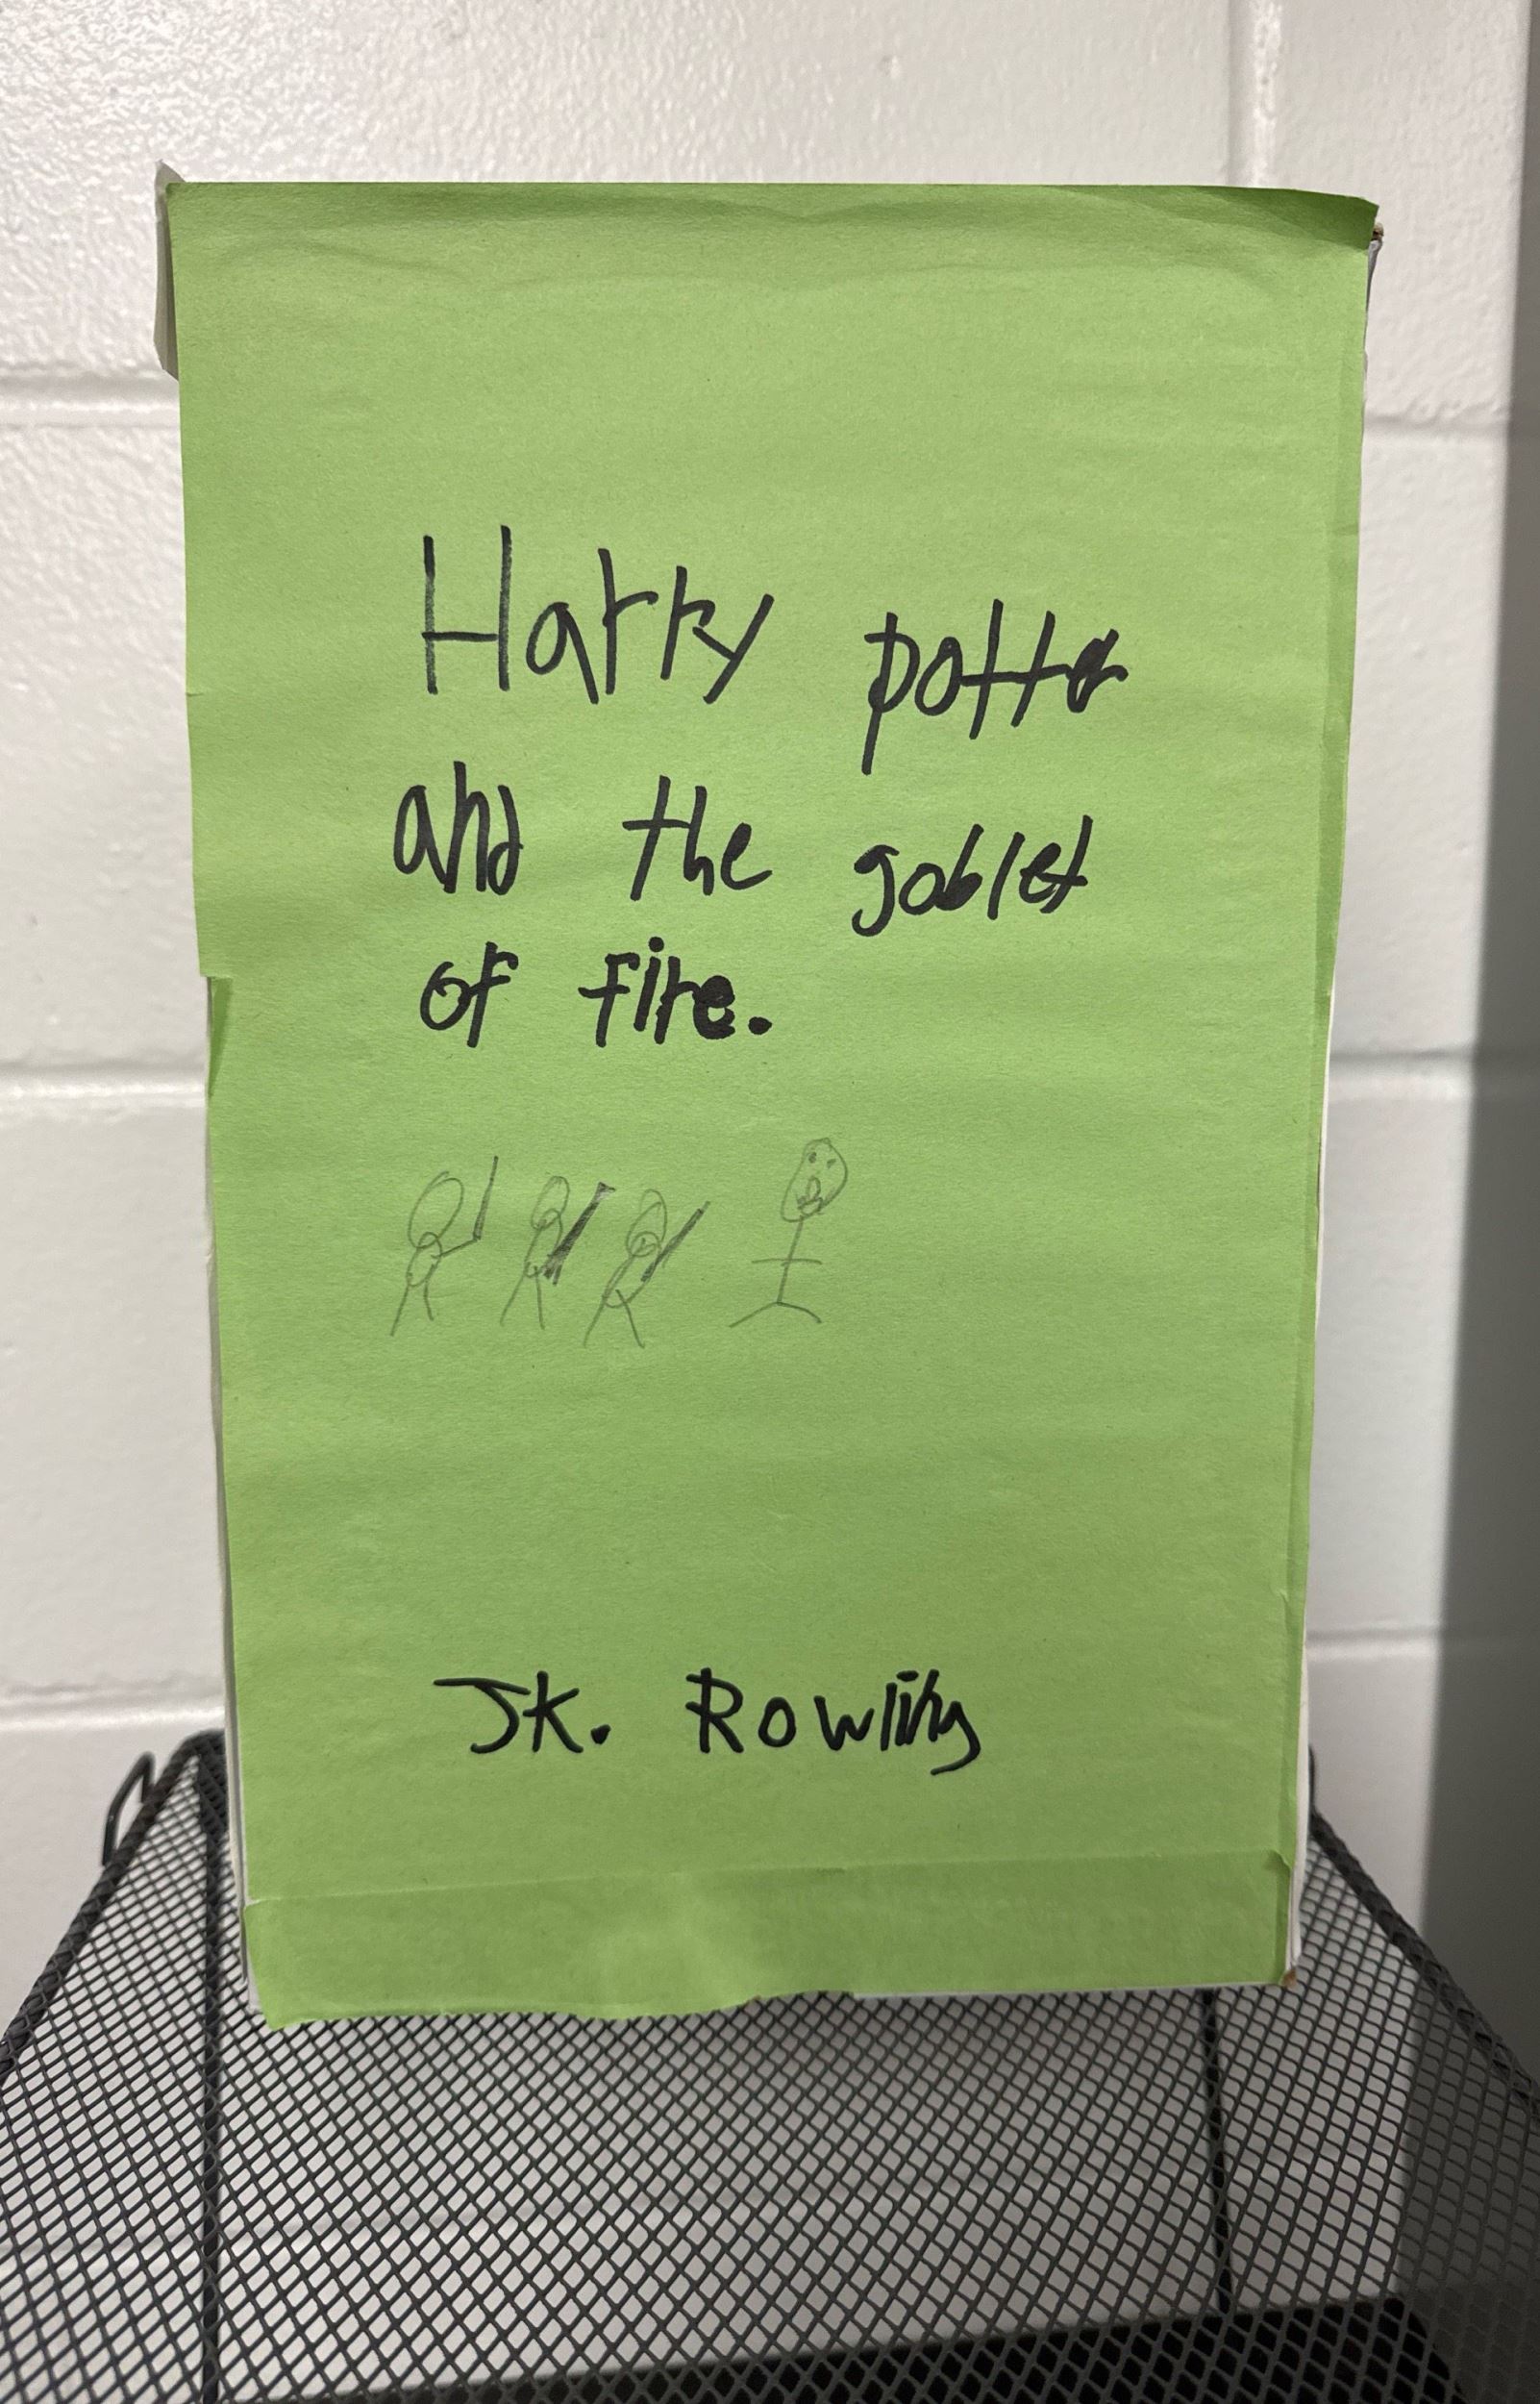 Harry potter
and the goblet
of fire.
JK. Rowling